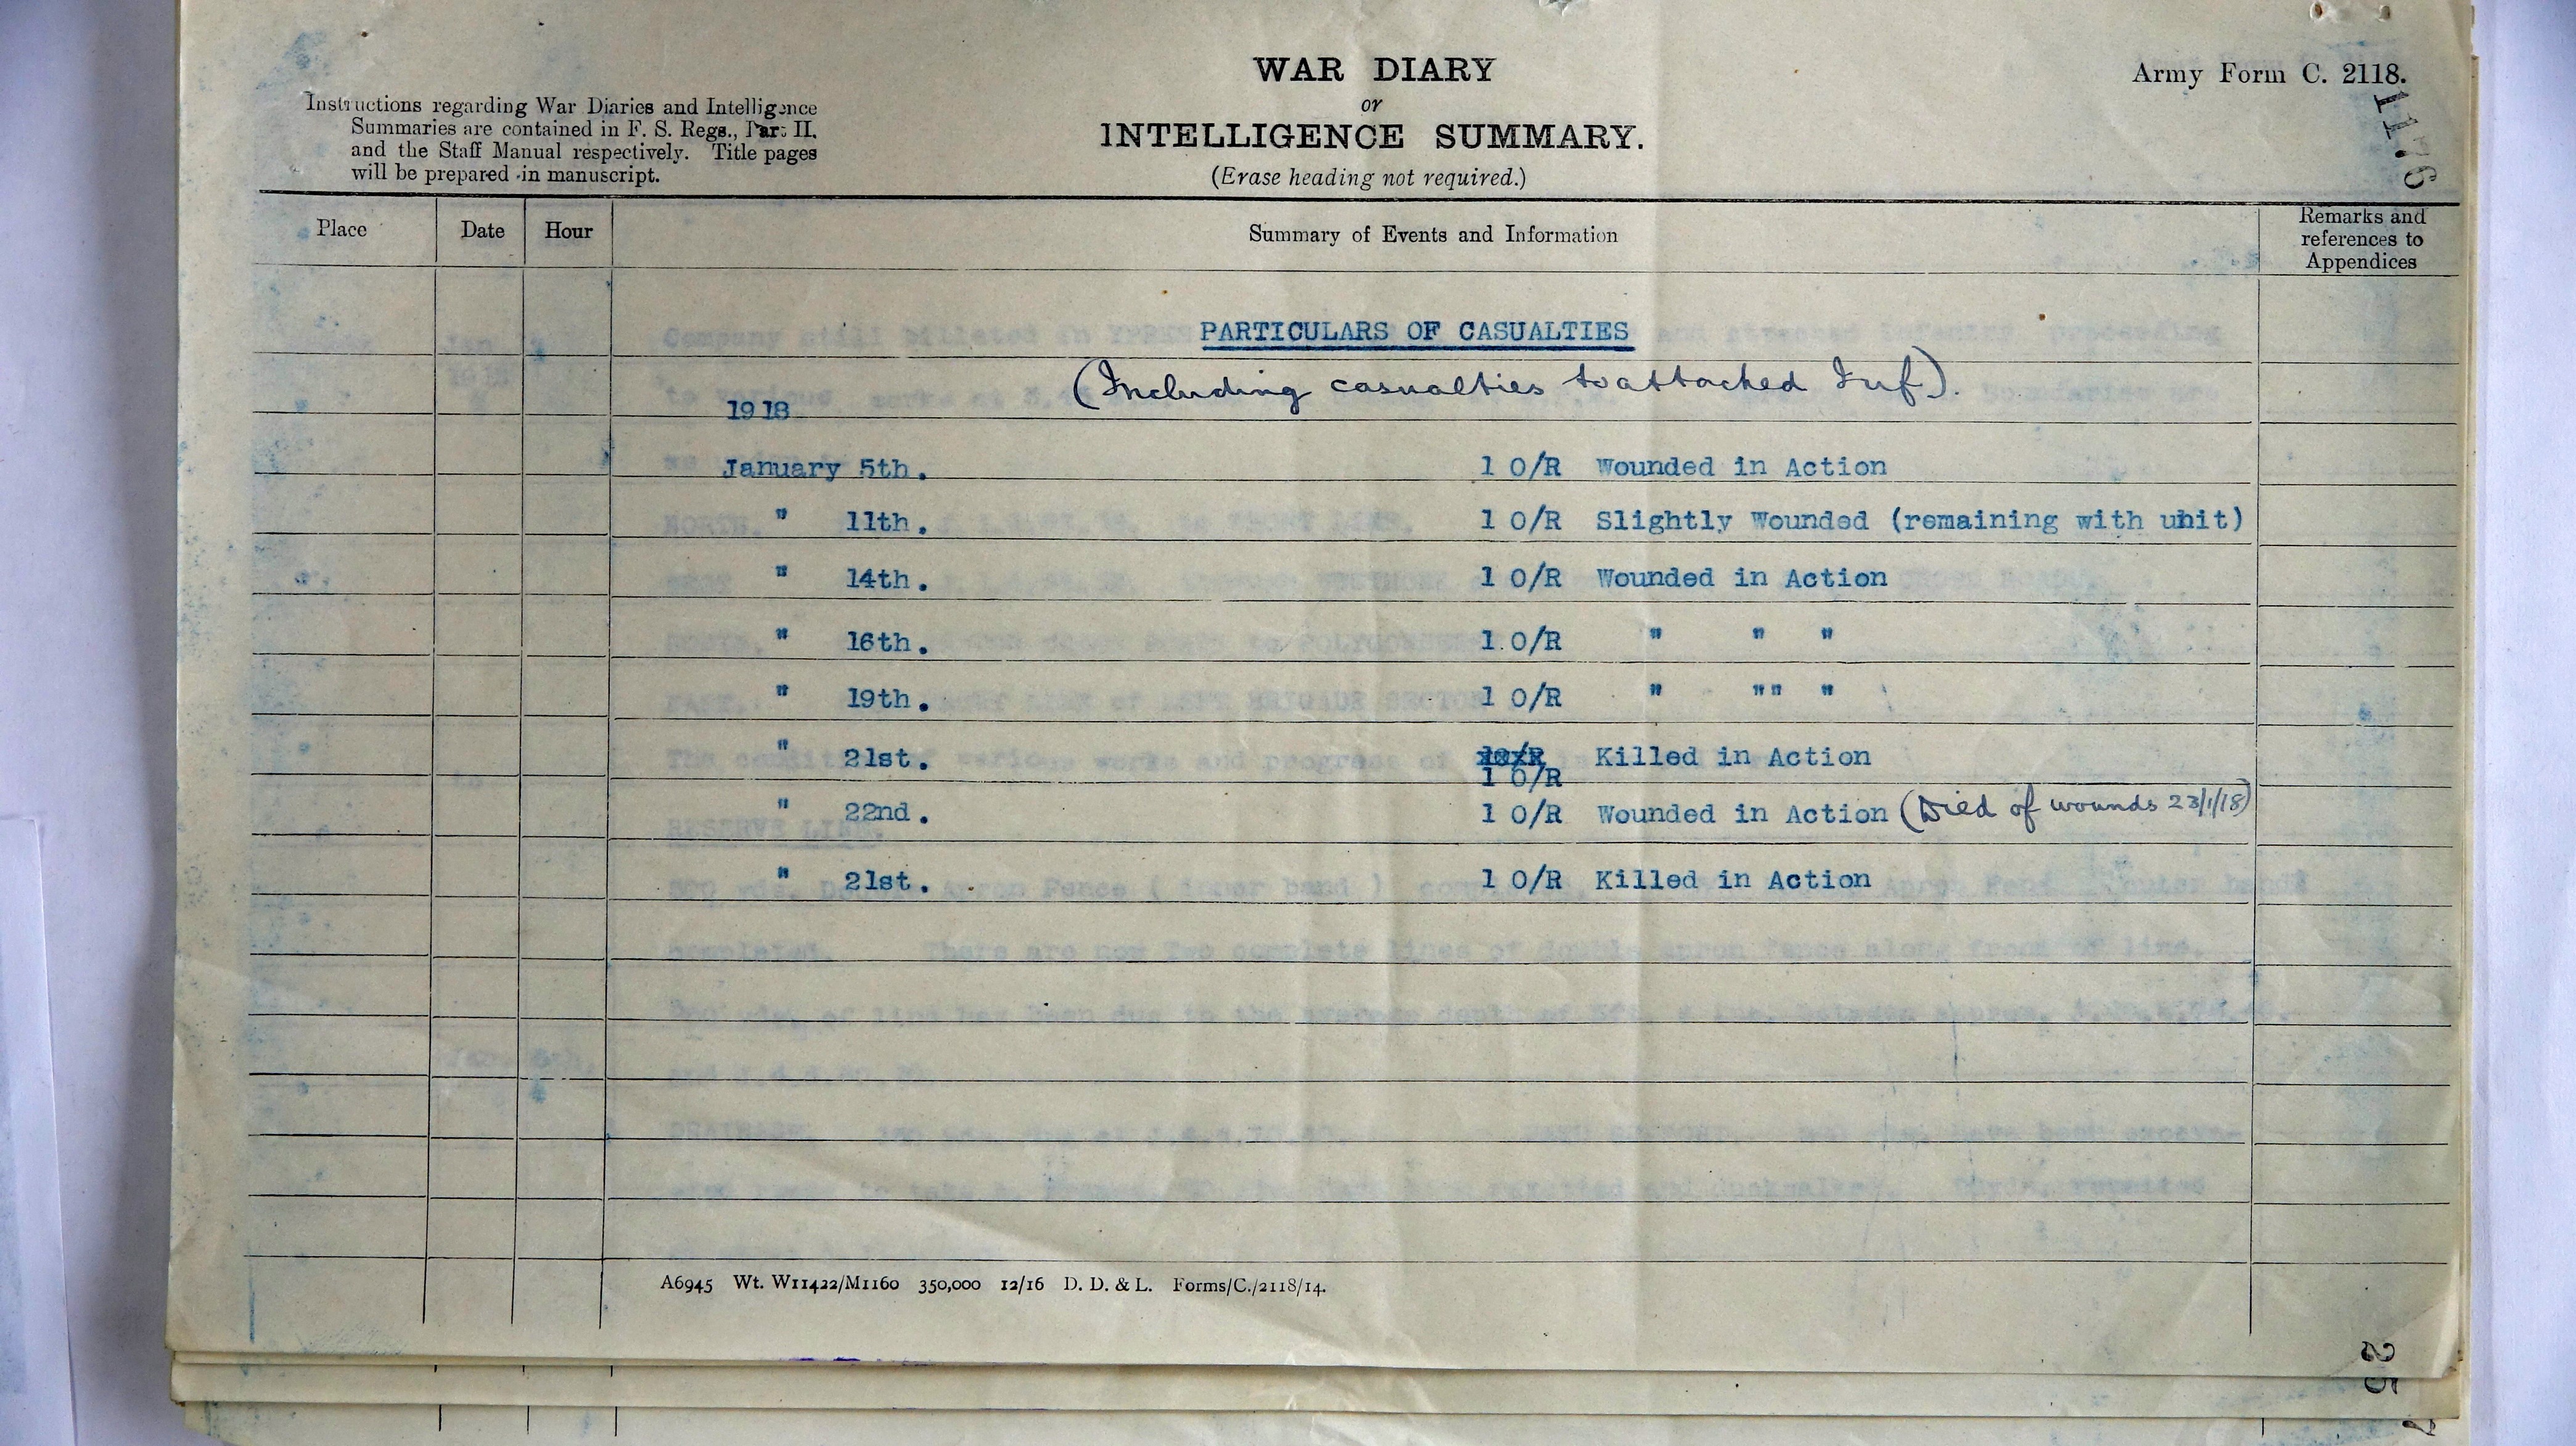 WAR DIARY
or
INTELLIGENCE SUMMARY.
(Erase heading not required.)
Army Form C. 2118.
Instructions regarding War Diaries and Intelligence
Summaries are contained in F. S. Regs., Part II.
and the Staff Manual respectively. Title pages
will be prepared in manuscript.
1176
Place Date Hour Summary of Events and Information Remarks and references to Appendices
PARTICULARS OF CASUALTIES
(Including casualties to attached Inf).
1918
January 5th. 1 O/R Wounded in Action
" 11th. 1 O/R Slightly Wounded (remaining with unit)
" 14th. 1 O/R Wounded in Action
" 16th. 1 O/R " " "
" 19th. 1 O/R " "" "
" 21st. Killed in Action
1 O/R
" 22nd. 1 O/R Wounded in Action (Died of wounds 23/1/18)
" 21st. 1 O/R Killed in Action
A6945 Wt. W11422/M1160 350,000 12/16 D. D. & L. Forms/C./2118/14.
25